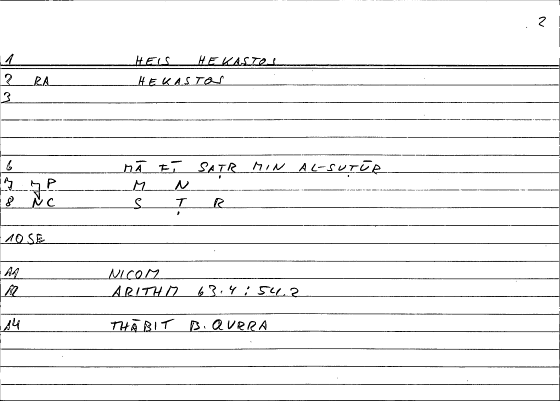 2
1 HEIS HEKASTOS
2 RA HEKASTOS
3
6 MĀ FĪ SAṬR MIN AL-SUṬŪR
7 JP M N
8 NC S Ṭ R
10 SE
11 NICOM
12 ARITHM 63.4 : 54.2
14 THĀBIT B. QURRA